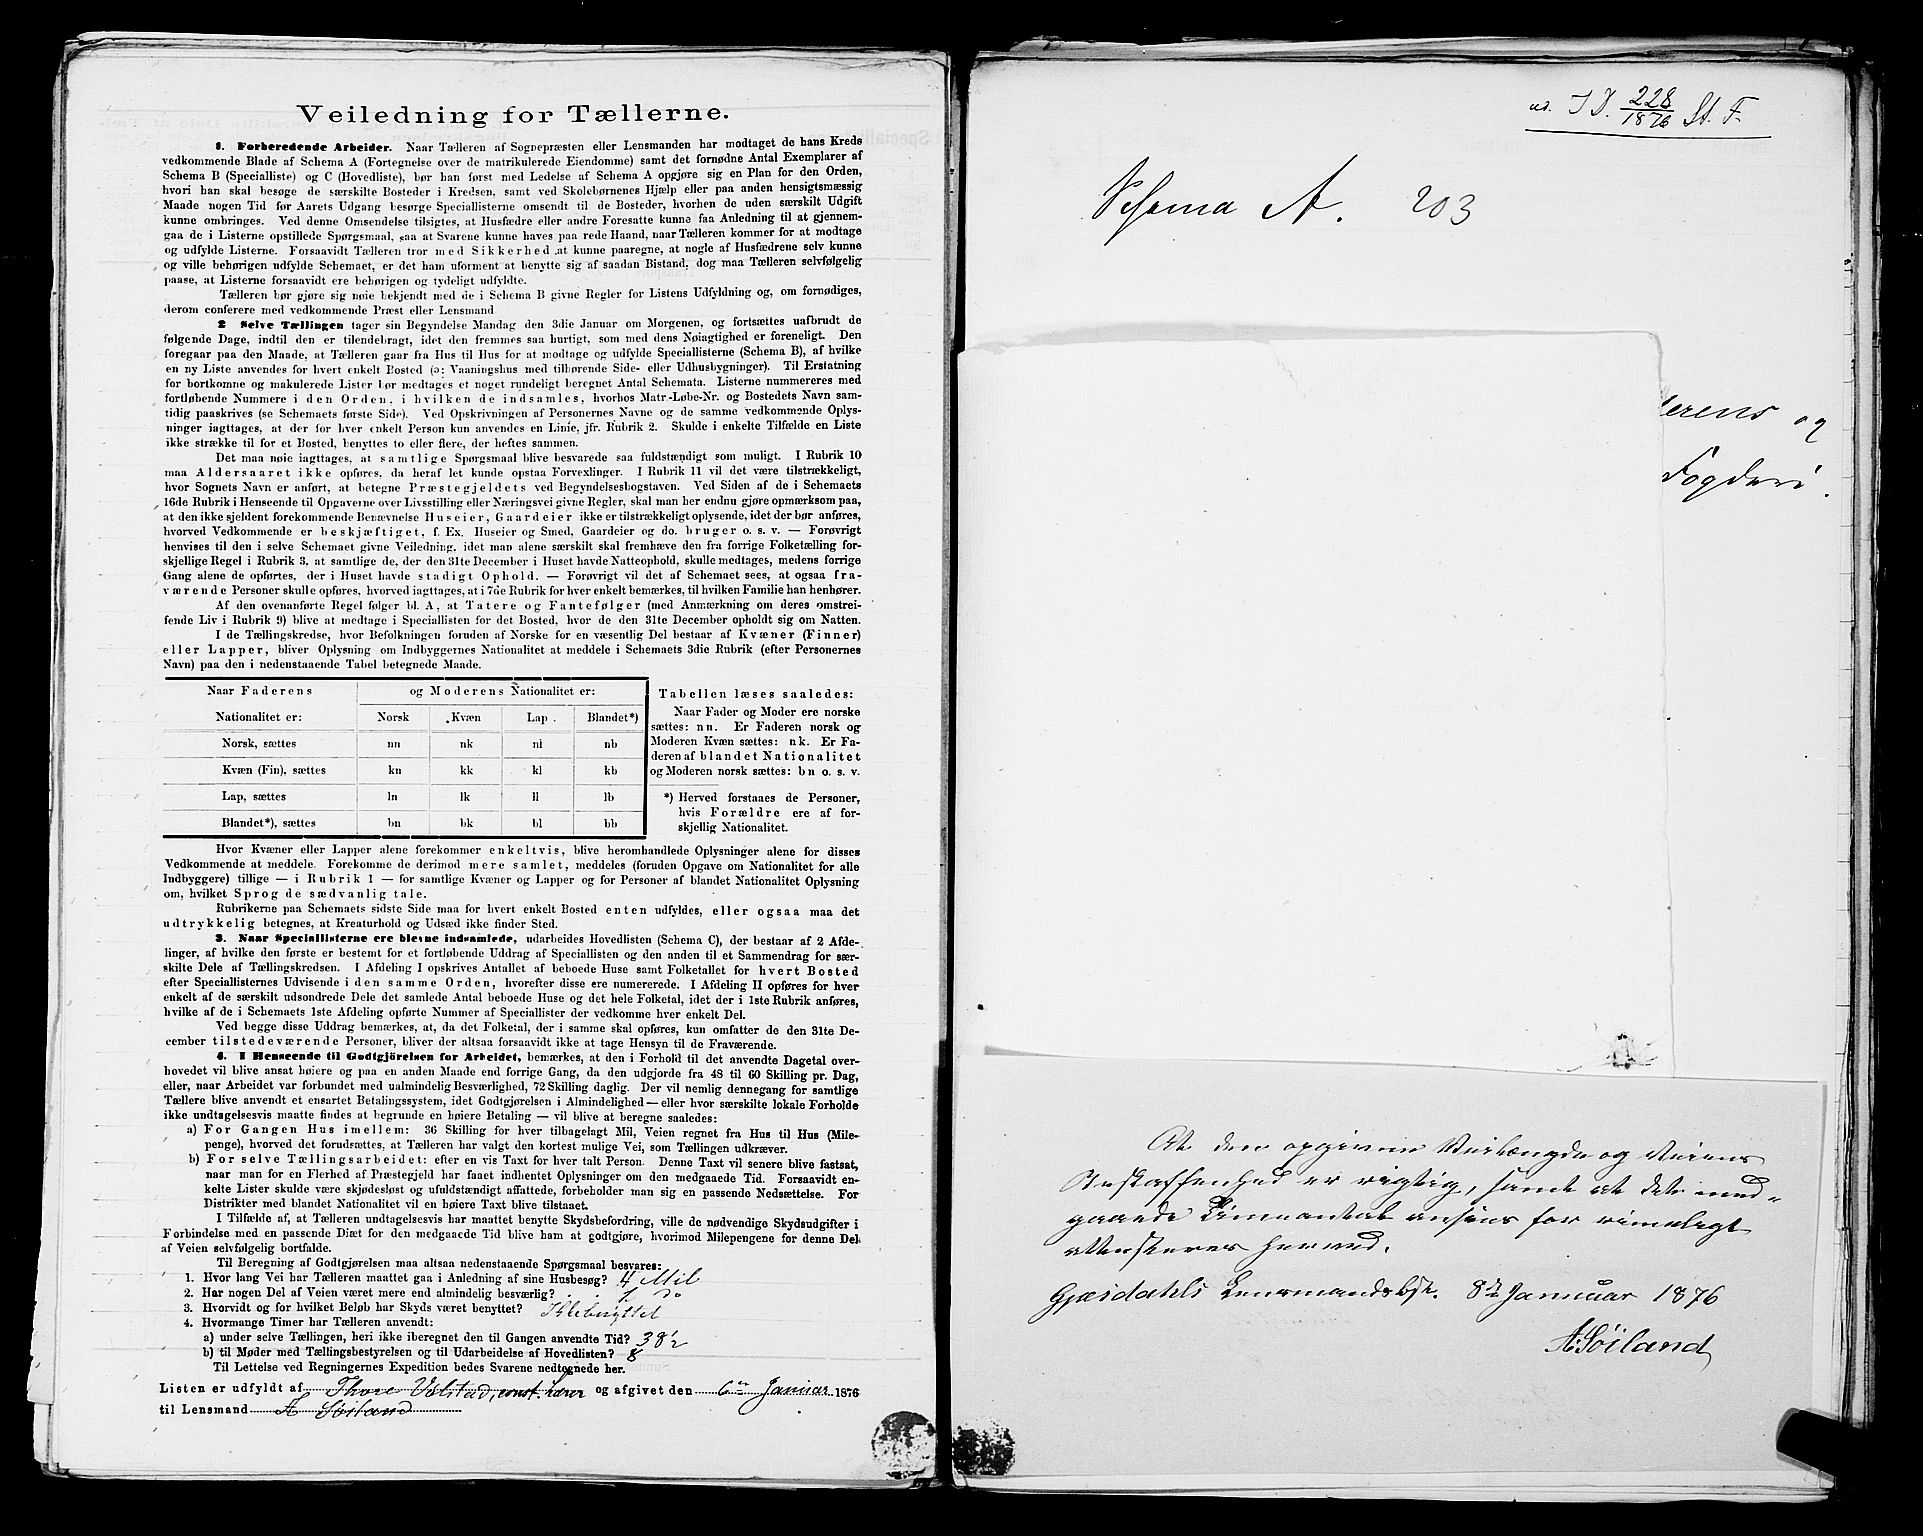 Veiledning for Tællerne.
1. Forberedende Arbeider. Naar Tælleren af Sognepræsten eller Lensmanden har modtaget de hans Kreds
vedkommende Blade af Schema A (Fortegnelse over de matrikulerede Eiendomme) samt det fornødne Antal Exemplarer af
Schema B (Specialliste) og C (Hovedliste), bør han først med Ledelse af Schema A opgjøre sig en Plan for den Orden,
hvori han skal besøge de særskilte Bosteder i Kredsen, samt ved Skolebørnenes Hjælp eller paa anden hensigtsmæssig
Maade nogen Tid før Aarets Udgang besørge Speciallisterne omsendt til de Bosteder, hvorhen de uden særskilt Udgift
kunne ombringes. Ved denne Omsendelse tilsigtes, at Husfædre eller andre Foresatte kunne faa Anledning til at gjennem-
gaa de i Listerne opstillede Spørgsmaal, saa at Svarene kunne haves paa rede Haand, naar Tælleren kommer for at modtage
og udfylde Listerne. Forsaavidt Tælleren tror med Sikkerhed at kunne paaregne, at nogle af Husfædrene selv kunne
og ville behørigen udfylde Schemaet, er det ham uforment at benytte sig af saadan Bistand, dog maa Tælleren selvfølgelig
paase, at Listerne forsaavidt ere behørigen og tydeligt udfyldte.
Tælleren bør gjøre sig nøie bekjendt med de i Schema B givne Regler for Listens Udfyldning og, om fornødiges,
derom conferere med vedkommende Præst eller Lensmand
2 Selve Tællingen tager sin Begyndelse Mandag den 3die Januar om Morgenen, og fortsættes uafbrudt de
følgende Dage, indtil den er tilendebragt, idet den fremmes saa hurtigt, som med dens Nøiagtighed er foreneligt. Den
foregaar paa den Maade, at Tælleren gaar fra Hus til Hus for at modtage og udfylde Speciallisterne (Schema B), af hvilke
en ny Liste anvendes for hvert enkelt Bosted (ɔ: Vaaningshus med tilhørende Side- eller Udhusbygninger). Til Erstatning
for bortkomne og makulerede Lister bør medtages et noget rundeligt beregnet Antal Schemata. Listerne nummereres med
fortløbende Nummere i den Orden, i hvilken de indsamles, hvorhos Matr.-Løbe-Nr. og Bostedets Navn sam-
tidig paaskrives (se Schemaets første Side). Ved Opskrivningen af Personernes Navne og de samme vedkommende Oplys-
ninger iagttages, at der for hver enkelt Person kun anvendes en Linie, jfr. Rubrik 2. Skulde i enkelte Tilfælde en Liste
ikke strække til for et Bosted, benyttes to eller flere, der heftes sammen.
Det maa nøie iagttages, at samtlige Spørgsmaal blive besvarede saa fuldstændigt som muligt. I Rubrik 10
maa Aldersaaret ikke opføres, da heraf let kunde opstaa Forvexlinger. I Rubrik 11 vil det være tilstrækkeligt,
hvor Sognets Navn er anført, at betegne Præstegjeldets ved Begyndelsesbogstaven. Ved Siden af de i Schemaets
16de Rubrik i Henseende til Opgaverne over Livsstilling eller Næringsvei givne Regler, skal man her endnu gjøre opmærksom paa,
at den ikke sjeldent forekommende Benævnelse Huseier, Gaardeier ikke er tilstrækkeligt oplysende, idet der bør anføres,
hvorved Vedkommende er beskjæftiget, f. Ex. Huseier og Smed, Gaardeier og do. bruger o. s. v. — Forøvrigt
henvises til den i selve Schemaet givne Veiledning, idet man alene særskilt skal fremhæve den fra forrige Folketælling for-
skjellige Regel i Rubrik 3, at samtlige de, der den 31te December i Huset havde Natteophold, skulle medtages, medens forrige
Gang alene de opførtes, der i Huset havde stadigt Ophold. — Forøvrigt vil det af Schemaet sees, at ogsaa fra-
værende Personer skulle opføres, hvorved iagttages, at i 7de Rubrik for hver enkelt bemærkes, til hvilken Familie han henhører.
Af den ovenanførte Regel følger bl. A, at Tatere og Fantefølger (med Anmærkning om deres omstrei-
fende Liv i Rubrik 9) blive at medtage i Speciallisten for det Bosted, hvor de den 31te December opholdt sig om Natten.
I de Tællingskredse, hvor Befolkningen foruden af Norske for en væsentlig Del bestaar af Kvæner (Finner)
eller Lapper, bliver Oplysning om Indbyggernes Nationalitet at meddele i Schemaets 3die Rubrik (efter Personernes
Navn) paa den i nedenstaaende Tabel betegnede Maade.
Naar Faderens og Moderens Nationalitet er:
Nationalitet er: Norsk Kvæn Lap Blandet*)
Norsk, sættes nn nk nl nb
Kvæn (Fin), sættes kn kk kl kb
Lap, sættes ln lk ll lb
Blandet*), sættes bn bk bl bb
Tabellen læses saaledes:
Naar Fader og Moder ere norske
sættes: nn. Er Faderen norsk og
Moderen Kvæn sættes: nk. Er Fa-
deren af blandet Nationalitet
og Moderen norsk sættes: bn o. s. v.
*) Herved forstaaes de Personer,
hvis Forældre ere af for-
skjellig Nationalitet.
Hvor Kvæner eller Lapper alene forekommer enkeltvis, blive heromhandlede Oplysninger alene for disses
Vedkommende at meddele. Forekomme de derimod mere samlet, meddeles (foruden Opgave om Nationalitet for alle
Indbyggere) tillige — i Rubrik 1 — for samtlige Kvæner og Lapper og for Personer af blandet Nationalitet Oplysning
om, hvilket Sprog de sædvanlig tale.
Rubrikerne paa Schemaets sidste Side maa for hvert enkelt Bosted enten udfyldes, eller ogsaa maa det
udtrykkelig betegnes, at Kreaturhold og Udsæd ikke finder Sted.
3. Naar Speciallisterne ere blevne indsamlede, udarbeides Hovedlisten (Schema C), der bestaar af 2 Afde-
linger, af hvilke den første er bestemt for et fortløbende Uddrag af Speciallisten og den anden til et Sammendrag for sær-
skilte Dele af Tællingskredsen. I Afdeling I opskrives Antallet af beboede Huse samt Folketallet for hvert Bosted
efter Speciallisternes Udvisende i den samme Orden, hvorefter disse ere numererede. I Afdeling II opføres for hver
enkelt af de særskilt udsondrede Dele det samlede Antal beboede Huse og det hele Folketal, idet der i 1ste Rubrik anføres,
hvilke af de i Schemaets 1ste Afdeling opførte Nummer af Speciallister der vedkomme hver enkelt Del.
Ved begge disse Uddrag bemærkes, at, da det Folketal, der i samme skal opføres, kun omfatter de den 31te De-
cember tilstedeværende Personer, bliver der altsaa forsaavidt ikke at tage Hensyn til de Fraværende.
4. I Henseende til Godtgjörelsen for Arbeidet, bemærkes, at den i Forhold til det anvendte Dagetal over-
hovedet vil blive ansat høiere og paa en anden Maade end forrige Gang, da den udgjorde fra 48 til 60 Skilling pr. Dag,
eller, naar Arbeidet var forbundet med ualmindelig Besværlighed, 72 Skilling daglig. Der vil nemlig dennegang for samtlige
Tællere blive anvendt et ensartet Betalingssystem, idet Godtgjørelsen i Almindelighed — eller hvor særskilte lokale Forholde
ikke undtagelsesvis maatte findes at begrunde en høiere Betaling — vil blive at beregne saaledes:
a) For Gangen Hus imellem: 36 Skilling for hver tilbagelagt Mil, Veien regnet fra Hus til Hus (Mile-
penge), hvorved det forudsættes, at Tælleren har valgt den kortest mulige Vei, som Tællingen udkræver.
b) For selve Tællingsarbeidet: efter en vis Taxt for hver talt Person. Denne Taxt vil senere blive fastsat,
naar man for en Flerhed af Præstegjeld har faaet indhentet Oplysninger om den medgaaede Tid. Forsaavidt en-
kelte Lister skulde være skjødesløst og ufuldstændigt affattede, forbeholder man sig en passende Nedsættelse. For
Distrikter med blandet Nationalitet vil en høiere Taxt blive tilstaaet.
I Tilfælde af, at Tælleren undtagelsesvis har maattet benytte Skydsbefordring, ville de nødvendige Skydsudgifter i
Forbindelse med en passende Diæt for den medgaaede Tid blive ham at godtgjøre, hvorimod Milepengene for denne Del
af Veien selvfølgelig bortfalde.
Til Beregning af Godtgjørelsen maa altsaa nedenstaaende Spørgsmaal besvares:
1. Hvor lang Vei har Tælleren maattet gaa i Anledning af sine Husbesøg? 4 Mil
2. Har nogen Del af Veien været mere end almindelig besværlig?
3. Hvorvidt og for hvilket Beløb har Skyds været benyttet? Ikke benyttet
4. Hvormange Timer har Tælleren anvendt:
a) under selve Tællingen, heri ikke iberegnet den til Gangen anvendte Tid? 38½
b) til Møder med Tællingsbestyrelsen og til Udarbeidelse af Hovedlisten? 8
Til Lettelse ved Regningernes Expedition bedes Svarene nedtegnede her.
Listen er udfyldt af Thore Valstad, const. Lærer og afgivet den 6te Januar 1876
til Lensmand A Söiland
ad. J D. 228/1876 St. F.
Schema A. 203
erens og
Fogderi.
At den opgivne Veilængde og Veiens
Beskaffenhed er rigtig, samt at det med-
gaaede Timeantal ansees for rimeligt
attesteres herved.
Gjæsdahls Lensmandsbst. 8de Januar 1876
A. Söiland